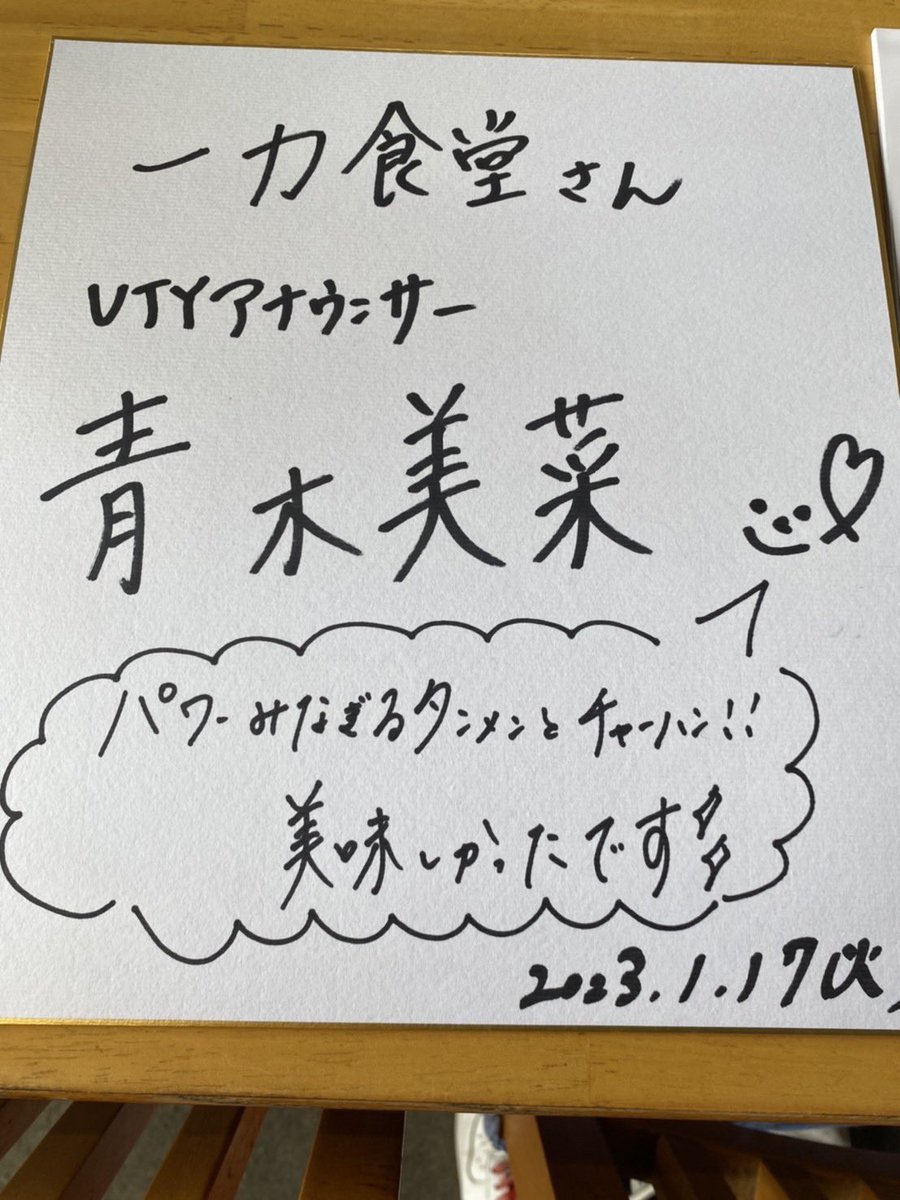 一力食堂さん
UTYアナウンサー
青木美菜
パワーみなぎるタンメンとチャーハン!!
美味しかったです
2023.1.17(火)